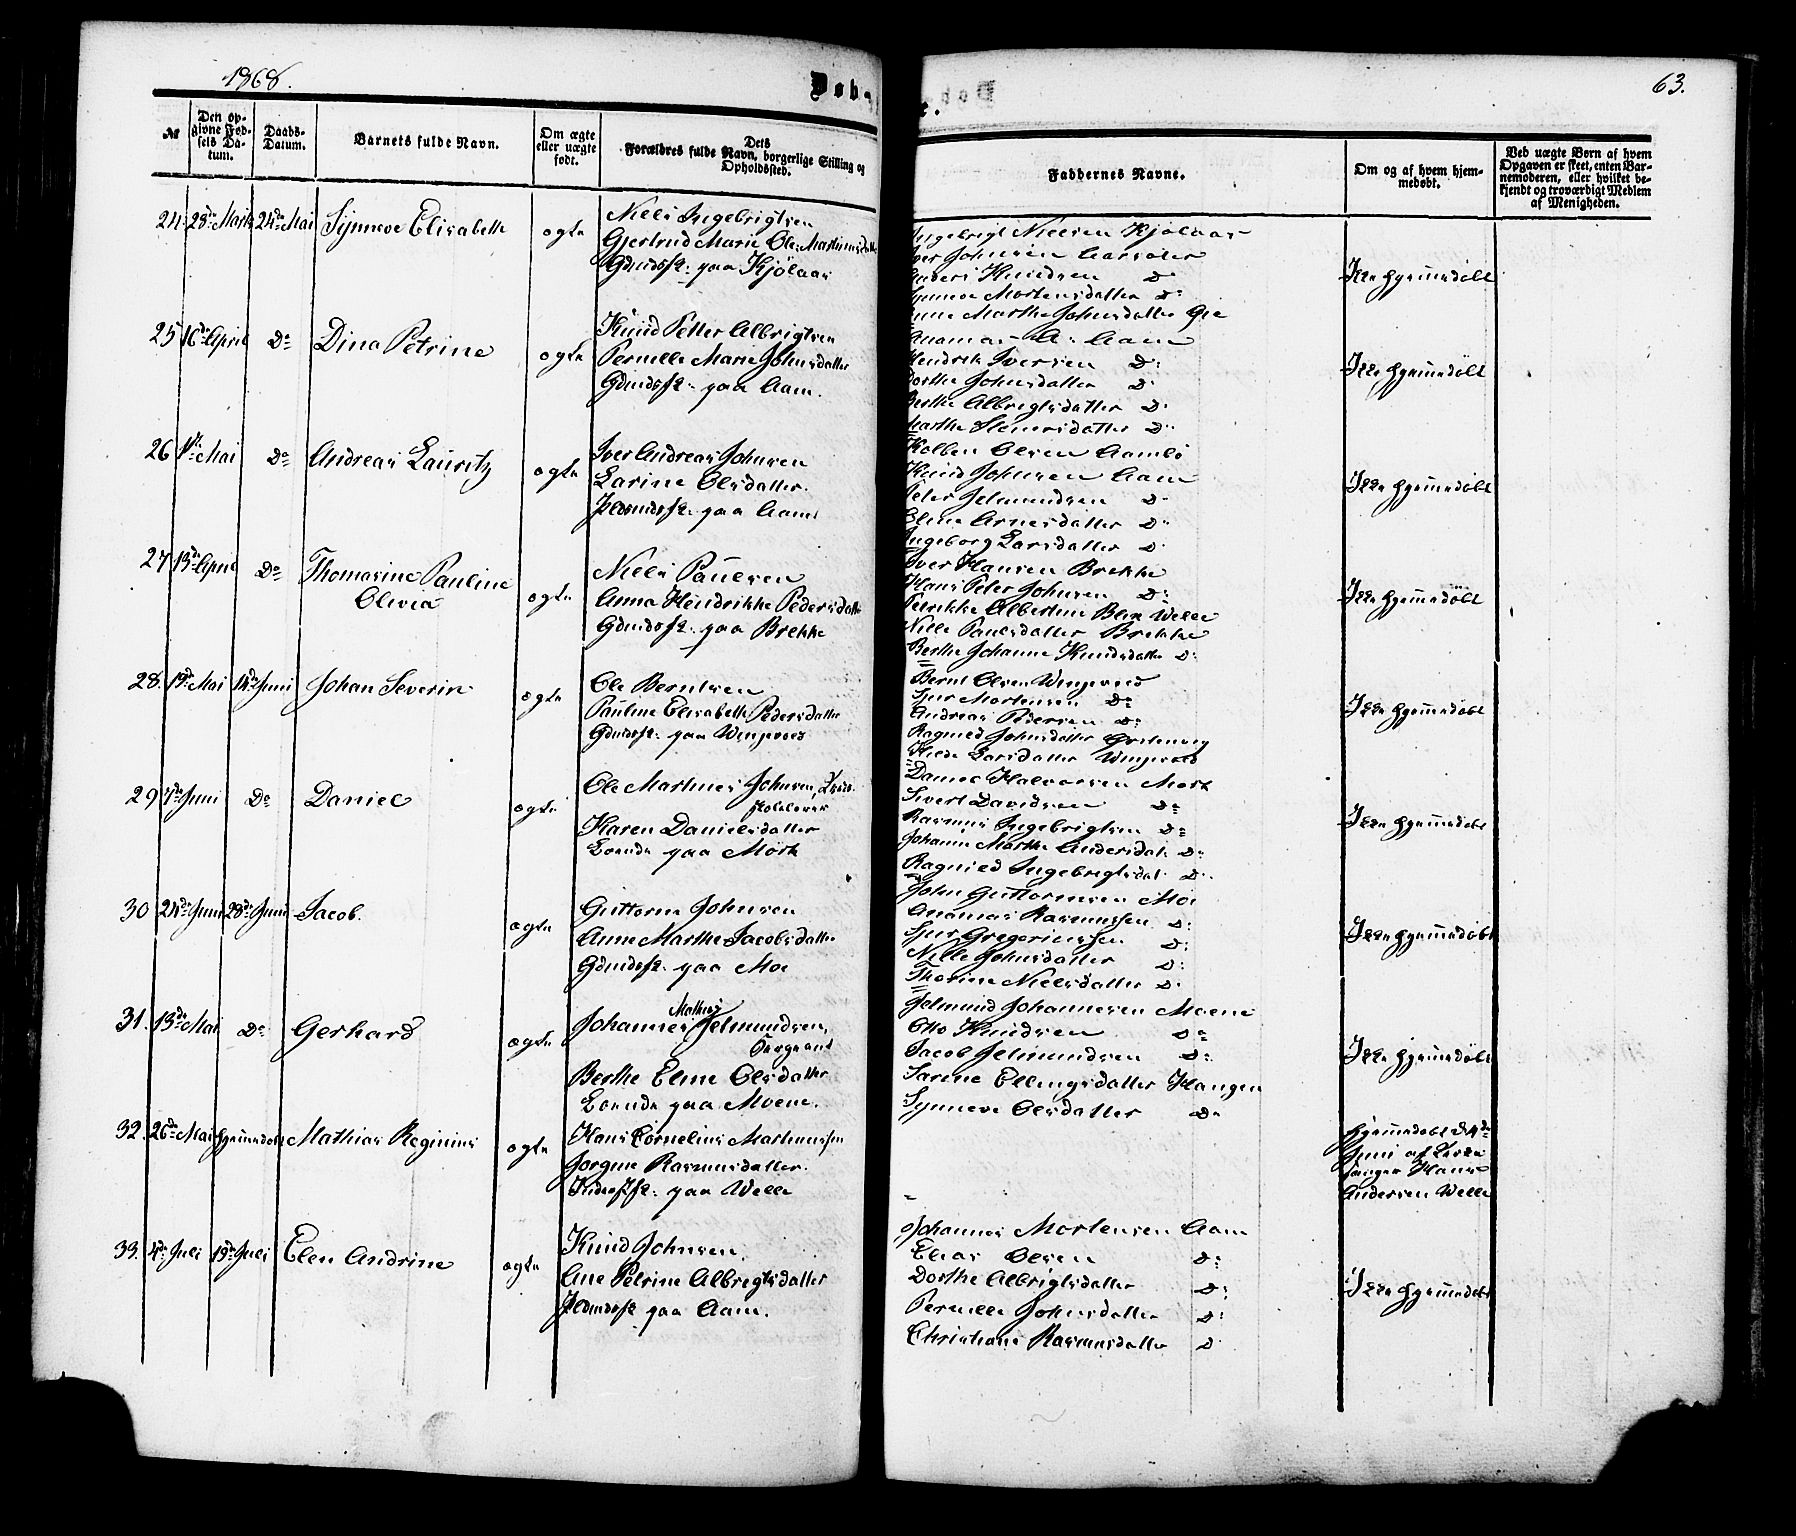 1868.
Døb-
e.
63.
№
Den op-
givne Fød-
sels Da-
tum.
Daabs-
Datum.
Barnets fulde Navn.
Om ægte
eller uægte
født.
Dets
Forældres fulde Navn, borgerlige Stilling og
Opholdssted.
Faddernes Navne.
Om og af hvem hjem-
medøbt.
Ved uægte Børn af hvem
Opgaven er skeet, enten Bar-
nemoderen, eller hvilket be-
kjendt og troværdigt Medlem
af Menigheden.
24. 23de Marts 24de Mai Synneve Elisabeth ægte
Niels Ingebrigtsen
Gjertrud Marie Ole Martinusdatter
Gdmdsf: paa Kjølaas
Ingebrigt Nielsen Kjølaas
Iver Johnsen Aarsæter
Anders Knudsen Do
Synneve Mortensdatter Do
Anne Marthe Johnsdatter
Ikke hjemmedøbt
25 16de April Do Dina Petrine ægte
Knud Petter Albrigtsen
Pernille Marie Johnsdatter
Gdmdsf: paa Aam.
Ananias A. Aam
Hendrik Iversen Do
Dorthe Johnsdatter Do
Berthe Albregtsdatter Do
Marthe Steinersdatter Do
Ikke hjemmedøbt
26 1ste Mai Do Andreas Lauritz ægte
Iver Andreas Johnsen
Larine Olsdatter.
Pldmdsf: paa Aam
Kolben Olsen Aamlø
Knud Johnsen Aam
Peter Jelmundsen Do
Eline Arnesdatter Do
Ingeborg Larsdatter Do
Ikke hjemmedøbt
27 13de April Do Thomasine Pauline
Olivia ægte
Niels Paulsen
Anna Hendrikke Pedersdatter
Gdmdsf: paa Brekke
Iver Hansen Brekke
Hans Peter Johnsen Do
Petrikke Albertine Welle
Nille Paulsdatter Brekke
Berthe Johanne Knudsdatter Do
Ikke hjemmedøbt
28. 19de Mai 14de Juni Johan Severin ægte
Ole Berntsen
Pauline Elisabeth Pedersdatter
Gdmdsf: paa Winjevold
Bernt Olsen Winjevold
Sjur Mortensen Do
Andreas Pedersen Do
Ragnild Johnsdatter
Larsdatter Winjevold
Ikke hjemmedøbt
29 7de Juni Do Daniel ægte
Ole Martines Johnsen,
Skolelærer
Karen Danielsdatter
Boende paa Mørk
Daniel Halvorsen Mørk
Sivert Davidsen Do
Rasmus Ingebrigtsen Do
Johanne Marthe Andersdat: Do
Ragnild Ingebrigtsdat: Do
Ikke hjemmedøbt
30 24de Juni 28de Juni Jacob. ægte
Guttorm Johnsen
Anne Marthe Jacobsdatter
Gdmdsf: paa Moe
John Guttormsen Moe
Ananias Rasmussen Do
Sjur Gregoriussen Do
Nille Johnsdatter Do
Thorine Nielsdatter Do
Ikke hjemmedøbt
31. 13de Mai Do Gerhard ægte
Mathias
Johannes Jelmundsen,
Sergeant
Berthe Eline Olsdatter
Boende paa Moene.
Jelmund Johannesen Moene
Otto Knudsen Do
Jacob Jelmundsen Do
Sarine Ellingsdatter Haugen
Synneve Olsdatter Do
Ikke hjemmedøbt
32. 26de Mai hjemmedøbt Mathias Reginius ægte
Hans Cornelius Martinussen
Jorgine Rasmusdatter.
paa Welle
hjemmedøbt d. 4de
Juni af Kirke
sanger Hans
Andersen Welle
33. 4de Juli 19de Juli Elen Andrine ægte
Knud Johnsen
Ane Petrine Albregtsdatter
Pldmdsf: paa Aam.
Johannes Mortensen Aam
Elias Olsen Do
Dorthe Albrigtsdatter Do
Pernille Johnsdatter Do
Christiane Rasmusdatter Do
Ikke hjemmedøbt